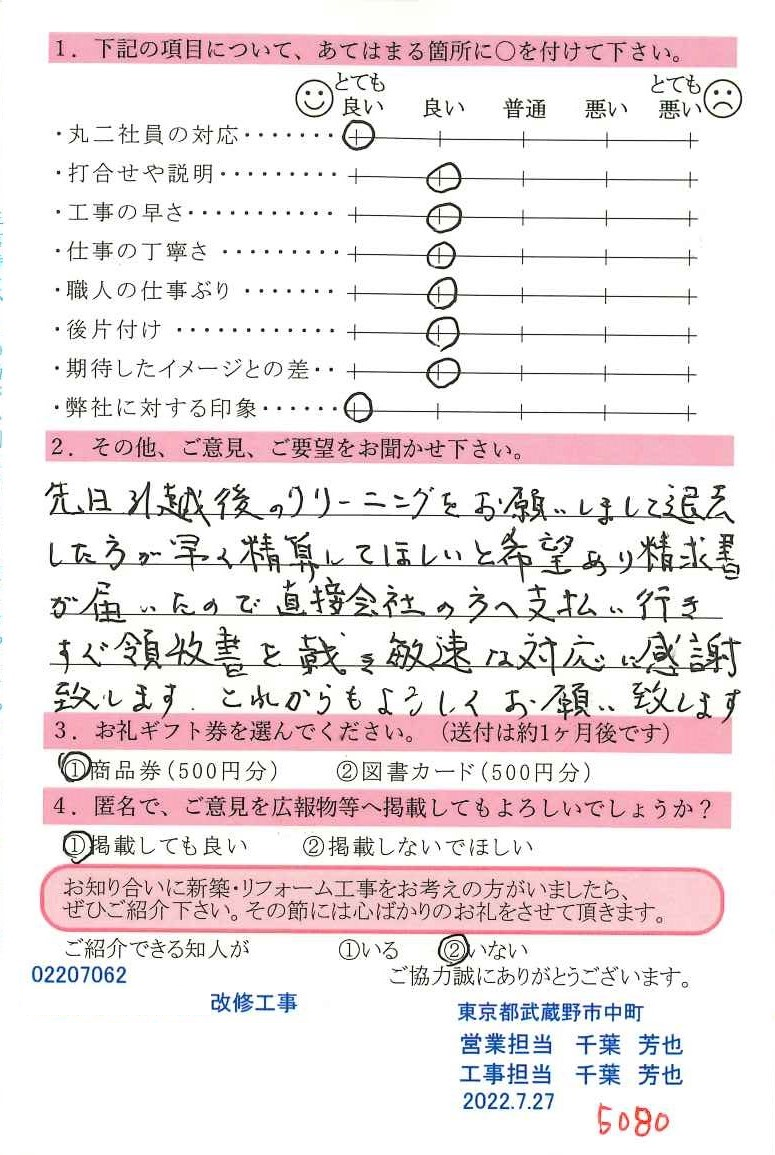 1. 下記の項目について、あてはまる箇所に○を付けて下さい。
とても良い 良い 普通 悪い とても悪い
・丸二社員の対応・・・・・・・
・打合せや説明・・・・・・・・・
・工事の早さ・・・・・・・・・・・
・仕事の丁寧さ ・・・・・・・・・
・職人の仕事ぶり ・・・・・・・
・後片付け ・・・・・・・・・・・・
・期待したイメージとの差・・
・弊社に対する印象・・・・・・
2. その他、ご意見、ご要望をお聞かせ下さい。
先日引越後のクリーニングをお願いしまして退去
した方が早く精算してほしいと希望あり精求書
が届いたので直接会社の方へ支払い行き
すぐ領収書を戴き敏速な対応に感謝
致します。これからもよろしくお願い致します
3. お礼ギフト券を選んでください。（送付は約1ヶ月後です）
①商品券（500円分） ②図書カード（500円分）
4. 匿名で、ご意見を広報物等へ掲載してもよろしいでしょうか？
①掲載しても良い ②掲載しないでほしい
お知り合いに新築・リフォーム工事をお考えの方がいましたら、
ぜひご紹介下さい。その節には心ばかりのお礼をさせて頂きます。
ご紹介できる知人が ①いる ②いない
02207062 ご協力誠にありがとうございます。
改修工事 東京都武蔵野市中町
営業担当 千葉 芳也
工事担当 千葉 芳也
2022.7.27
5080